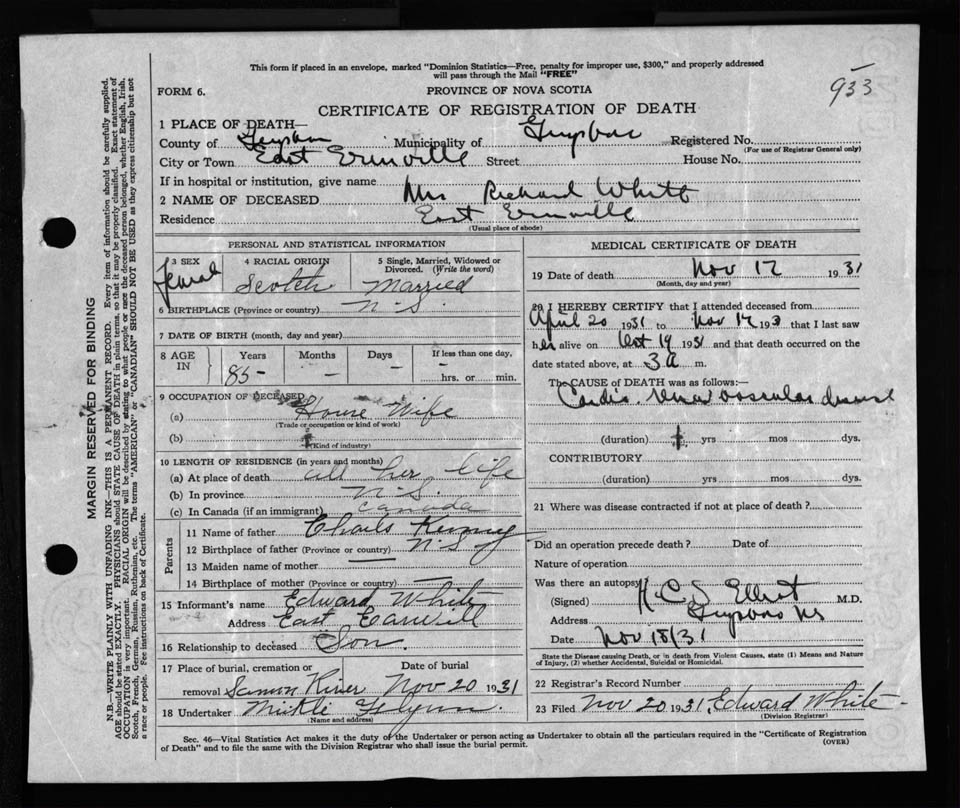 This form if placed in an envelope, marked "Dominion Statistics—Free, penalty for improper use, $300," and properly addressed
will pass through the Mail "FREE"
933
FORM 6.
PROVINCE OF NOVA SCOTIA
CERTIFICATE OF REGISTRATION OF DEATH
1 PLACE OF DEATH—
County of Municipality of Registered No.
(For use of Registrar General only)
City or Town East Erinville Street House No.
If in hospital or institution, give name
2 NAME OF DECEASED Mrs Richard White
Residence East Erinville
(Usual place of abode)
PERSONAL AND STATISTICAL INFORMATION
3 SEX 4 RACIAL ORIGIN 5 Single, Married, Widowed or
Divorced. (Write the word)
Female Scotch Married
6 BIRTHPLACE (Province or country) N-S.
7 DATE OF BIRTH (month, day and year)
8 AGE IN Years Months Days If less than one day,
85- — — hrs. or min.
9 OCCUPATION OF DECEASED
(a) House Wife
(Trade or occupation or kind of work)
(b)
(Kind of industry)
10 LENGTH OF RESIDENCE (in years and months)
(a) At place of death all her life
(b) In province N-S.
(c) In Canada (if an immigrant) Canada
Parents
11 Name of father Charls
12 Birthplace of father (Province or country) N-S
13 Maiden name of mother —
14 Birthplace of mother (Province or country) —
15 Informant's name Edward White
Address East
16 Relationship to deceased Son.
17 Place of burial, cremation or Date of burial
removal River Nov 20 1931
18 Undertaker
(Name and address)
MEDICAL CERTIFICATE OF DEATH
19 Date of death Nov 17 1931
(Month, day and year)
20 I HEREBY CERTIFY that I attended deceased from
April 20 1931 to Nov 17 193 that I last saw
her alive on Oct 19 1931 and that death occurred on the
date stated above, at 3 a m.
The CAUSE of DEATH was as follows:—
Cardio vascular
(duration) yrs mos dys.
CONTRIBUTORY
(duration) yrs mos dys.
21 Where was disease contracted if not at place of death?
Did an operation precede death? Date of
Nature of operation
Was there an autopsy
(Signed) M.D.
Address
Date Nov 18/31
State the Disease causing Death, or in death from Violent Causes, state (1) Means and Nature
of Injury, (2) whether Accidental, Suicidal or Homicidal.
22 Registrar's Record Number
23 Filed Nov 20 1931, Edward White
(Division Registrar)
Sec. 46—Vital Statistics Act makes it duty of the Undertaker or person acting as Undertaker to obtain all the particulars required in the "Certificate of Registration
of Death" and to file the same with the Division Registrar who shall issue the burial permit. (OVER)
MARGIN RESERVED FOR BINDING
N.B.—WRITE PLAINLY WITH UNFADING INK—THIS IS A PERMANENT RECORD. Every item of information should be carefully supplied.
AGE should be stated EXACTLY. PHYSICIANS should STATE CAUSE OF DEATH in plain terms, so that it may be properly classified. Exact statement of
OCCUPATION is very important. RACIAL ORIGIN will be described by stating to what people or race the deceased person belonged, whether English, Irish,
Scotch, French, German, Russian, Ruthenian, etc. The terms "AMERICAN" or "CANADIAN" SHOULD NOT BE USED as they express citizenship but not
a race or people. Fee instructions on back of Certificate.